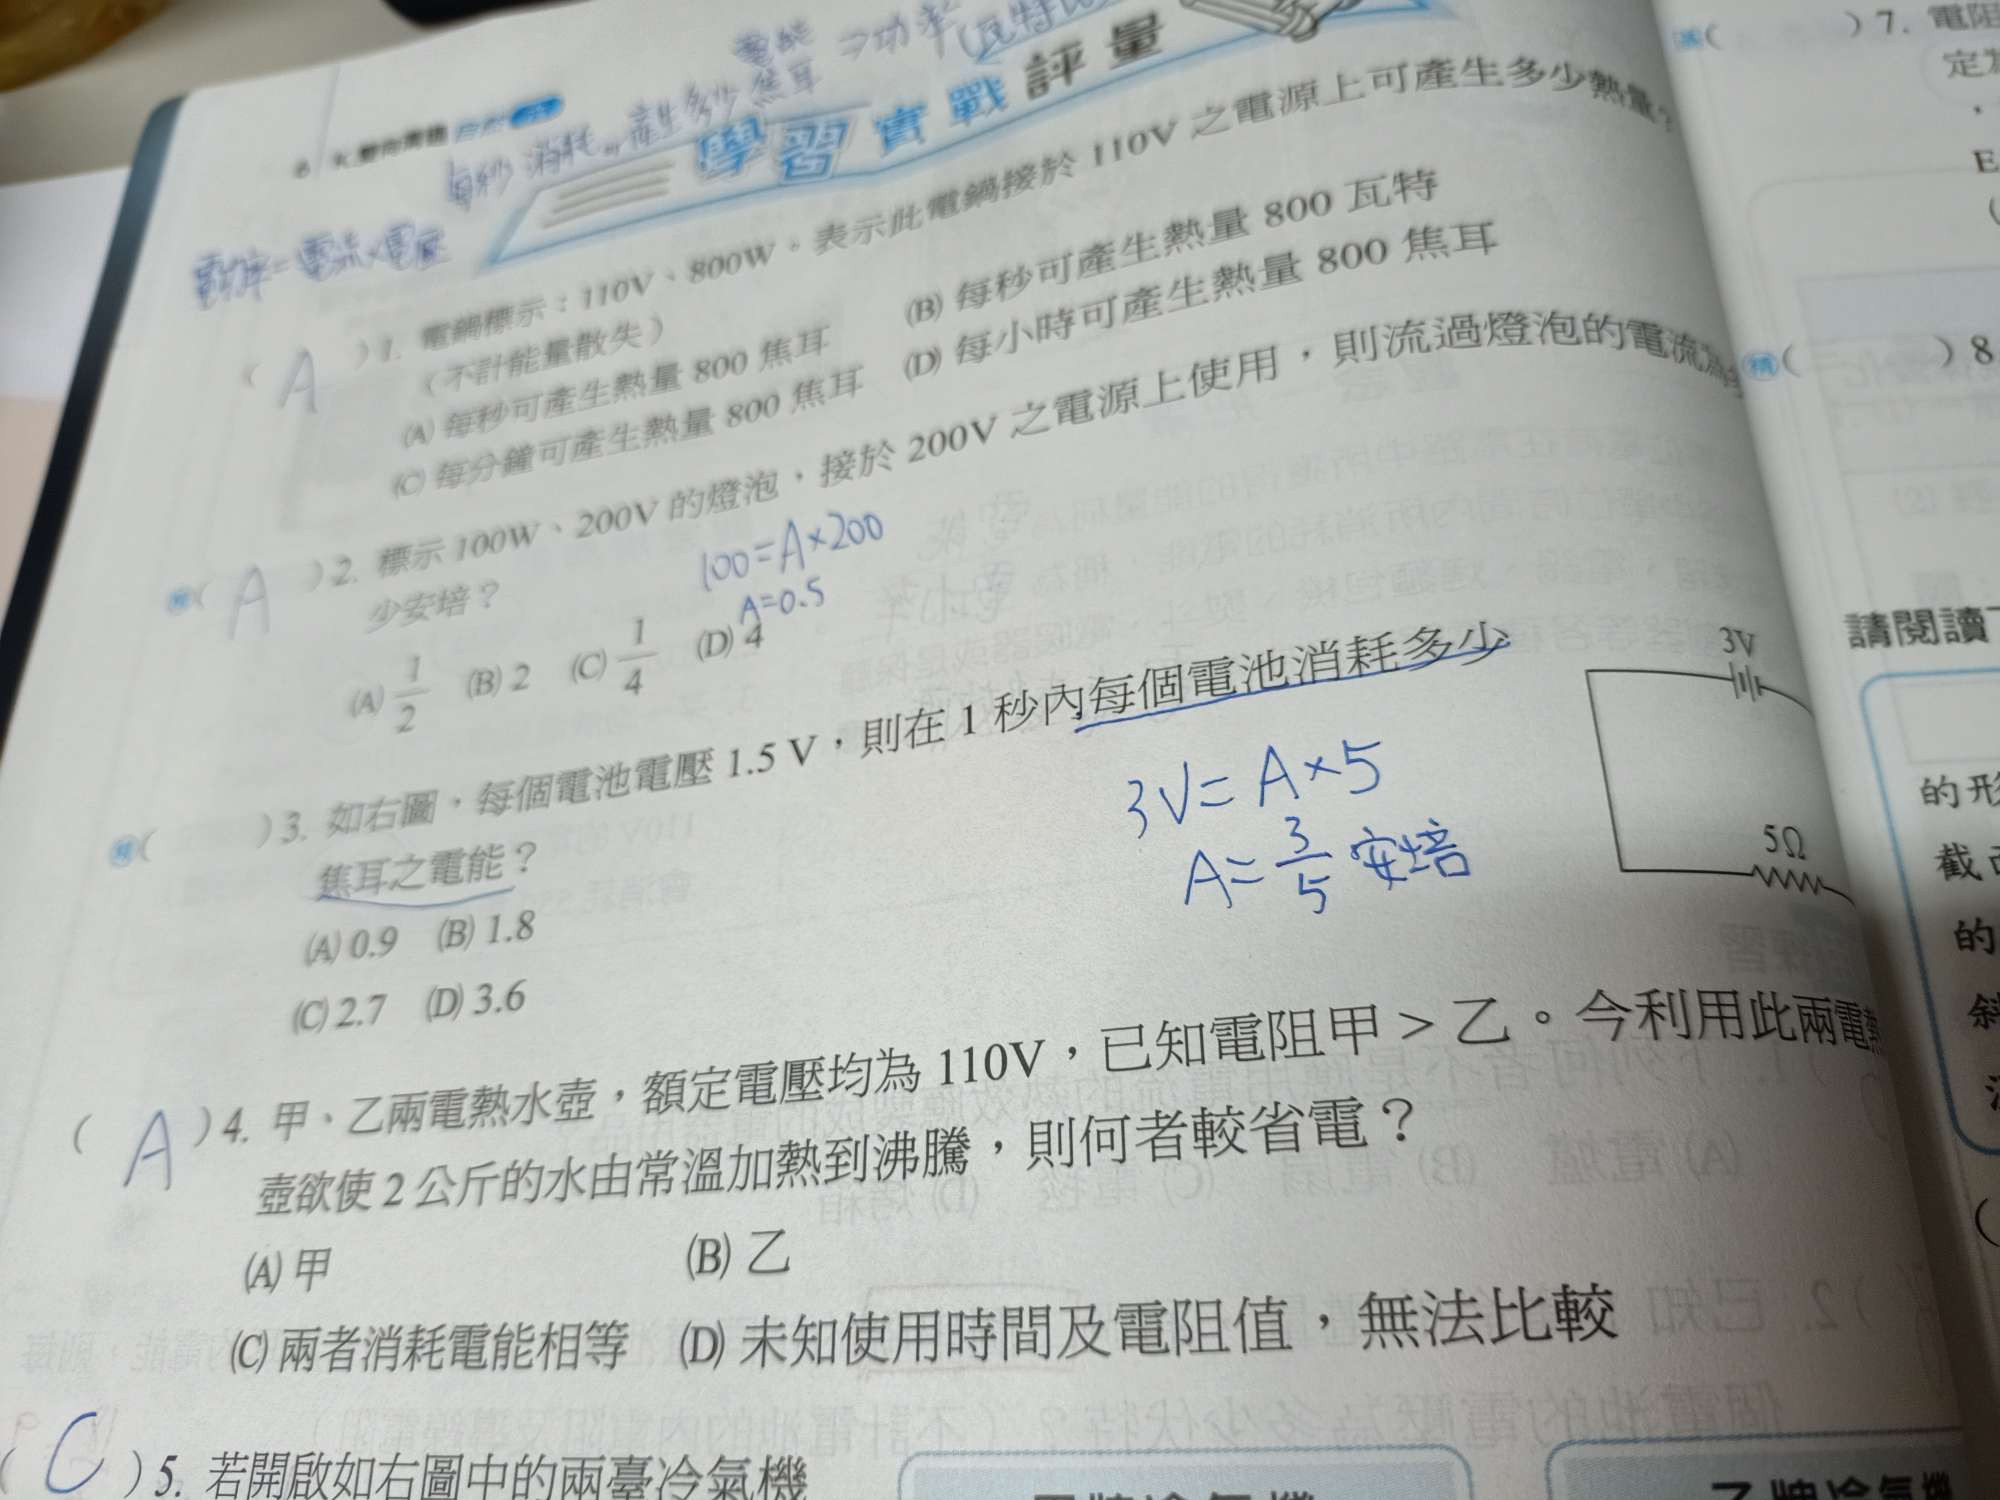 電能 ⇒功率(瓦特
每秒 消耗 產生多少 焦耳
電功率=電流×電壓
學習實戰評量
( A )1. 電鍋標示：110V、800W。表示此電鍋接於 110V 之電源上可產生多少熱量？
（不計能量散失）
(A) 每秒可產生熱量 800 焦耳 (B) 每秒可產生熱量 800 瓦特
(C) 每分鐘可產生熱量 800 焦耳 (D) 每小時可產生熱量 800 焦耳
( A )2. 標示 100W、200V 的燈泡，接於 200V 之電源上使用，則流過燈泡的電流為多
少安培？
100=A×200
A=0.5
(A) 1/2 (B) 2 (C) 1/4 (D) 4
( )3. 如右圖，每個電池電壓 1.5 V，則在 1 秒內每個電池消耗多少
焦耳之電能？
(A) 0.9 (B) 1.8
(C) 2.7 (D) 3.6
3V= A×5
A= 3/5 安培
3V
5Ω
( A )4. 甲、乙兩電熱水壺，額定電壓均為 110V，已知電阻甲 > 乙。今利用此兩電熱
壺欲使 2 公斤的水由常溫加熱到沸騰，則何者較省電？
(A) 甲 (B) 乙
(C) 兩者消耗電能相等 (D) 未知使用時間及電阻值，無法比較
( C )5. 若開啟如右圖中的兩臺冷氣機
( )7. 電阻
定
( )8
請閱讀
的形
截
的